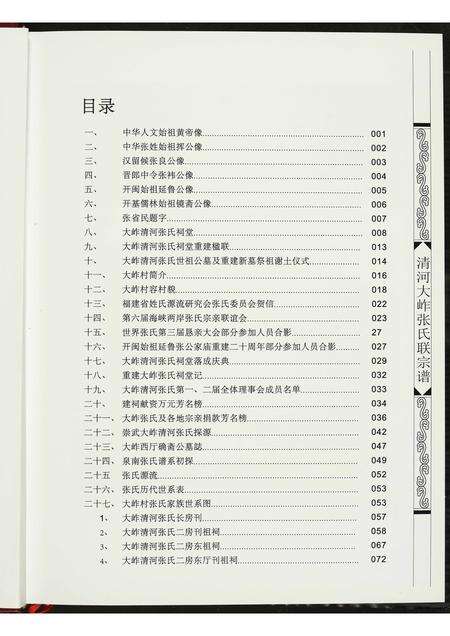 目录
一、 中华人文始祖黄帝像 001
二、 中华张姓始祖挥公像 002
三、 汉留候张良公像 003
四、 晋郎中令张袆公像 004
五、 开闽始祖延鲁公像 005
六、 开基儒林始祖镜斋公像 006
七、 张省民题字 007
八、 大岞清河张氏祠堂 008
九、 大岞清河张氏祠堂重建楹联 013
十、 大岞清河张氏世祖公墓及重建新墓祭祖谢土仪式 014
十一、 大岞村简介 016
十二、 大岞村容村貌 018
十三、 福建省姓氏源流研究会张氏委员会贺信 022
十四、 第六届海峡两岸张氏宗亲联谊会 023
十五、 世界张氏第三届恳亲大会部分参加人员合影 27
十六、 开闽始祖延鲁张公家庙重建二十周年部分参加人员合影 027
十七、 大岞清河张氏祠堂落成庆典 029
十八、 重建大岞张氏祠堂记 032
十九、 大岞清河张氏第一、二届全体理事会成员名单 033
二十、 建祠献资万元芳名榜 034
二十一、 大岞张氏及各地宗亲捐款芳名榜 036
二十二、 崇武大岞清河张氏探源 042
二十三、 大岞西厅确斋公墓誌 047
二十四、 泉南张氏谱系初探 049
二十五 张氏源流 052
二十六、 张氏历代世系表 053
二十七、 大岞村张氏家族世系图 053
1、 大岞清河张氏长房刊 057
2、 大岞清河张氏二房刊祖祠 058
3、 大岞清河张氏二房东祖祠 067
4、 大岞清河张氏二房东厅刊祖祠 072
清河大岞张氏联宗谱